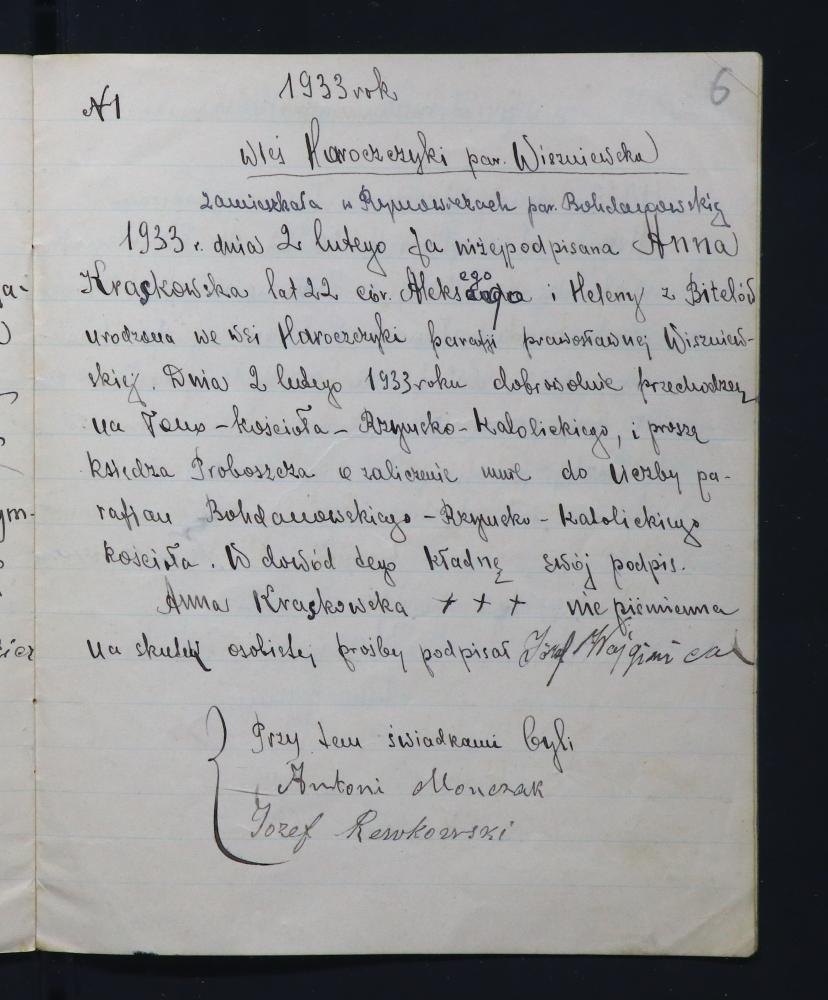 1933 rok
6
N1
Wieś Haroczczyki par. Wiszniewska
zamieszkała w Rymowiczach par. Bohdanowskiej
1933 r. dnia 2 lutego Ja niżejpodpisana Anna
Kraskowska lat 22 cór. Aleksego i Heleny z Bitelów
urodzona we wsi Haroczczyki parafji prawosławnej Wiszniew-
skiej. Dnia 2 lutego 1933 roku dobrowolnie przechodzę
na łono - kościoła - Rzymsko - Katolickiego, i proszę
księdza Proboszcza o zaliczenie mnie do liczby pa-
rafjan Bohdanowskiego - Rzymsko - Katolickiego
kościoła. W dowód tego kładnę swój podpis.
Anna Kraskowska + + + nie piśmienna
na skutek osobistej prośby podpisał Józef
Przy tem świadkami byli
Antoni Monczak
Jozef Rewkowski